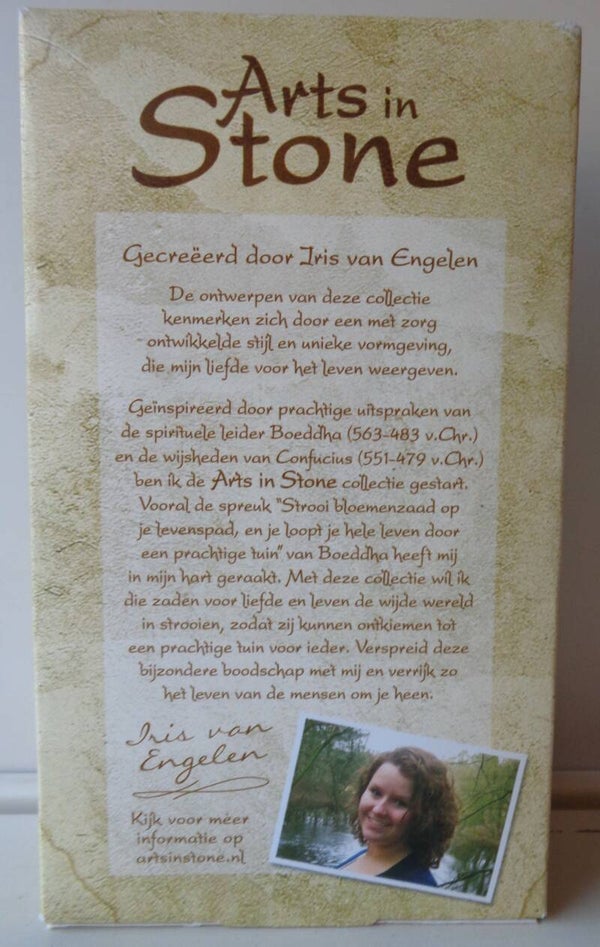 Arts in
Stone
Gecreëerd door Iris van Engelen
De ontwerpen van deze collectie
kenmerken zich door een met zorg
ontwikkelde stijl en unieke vormgeving,
die mijn liefde voor het leven weergeven.
Geïnspireerd door prachtige uitspraken van
de spirituele leider Boeddha (563-483 v.Chr.)
en de wijsheden van Confucius (551-479 v.Chr.)
ben ik de Arts in Stone collectie gestart.
Vooral de spreuk "Strooi bloemenzaad op
je levenspad, en je loopt je hele leven door
een prachtige tuin" van Boeddha heeft mij
in mijn hart geraakt. Met deze collectie wil ik
die zaden voor liefde en leven de wijde wereld
in strooien, zodat zij kunnen ontkiemen tot
een prachtige tuin voor ieder. Verspreid deze
bijzondere boodschap met mij en verrijk zo
het leven van de mensen om je heen.
Iris van
Engelen
Kijk voor meer
informatie op
artsinstone.nl